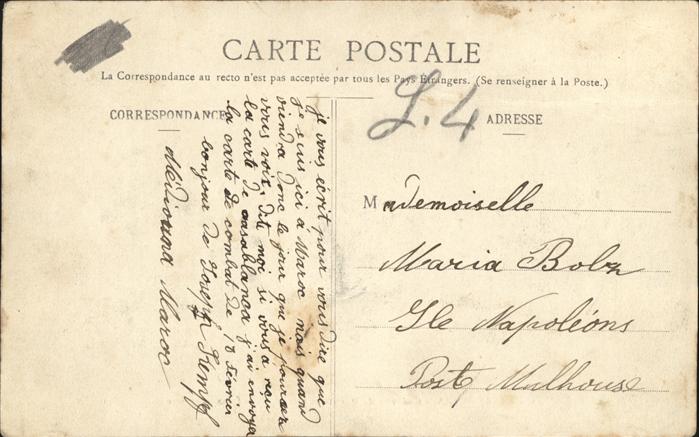 CARTE POSTALE
La Correspondance au recto n'est pas acceptée par tous les Pays Étrangers. (Se renseigner à la Poste.)
L. 4
CORRESPONDANCE
ADRESSE
je vous écrit pour vous dire que
je suis ici à Maroc mais quand
viendra donc le jour que je pourrer
vous voir. dite moi si vous a reçu
la carte de casablanca j'ai envoya
la carte de combat de 18 février
bonjour de Joseph Kempf
Médiouna Maroc
Mademoiselle
Maria Bobn
Ile Napoléons
Post Mulhouse